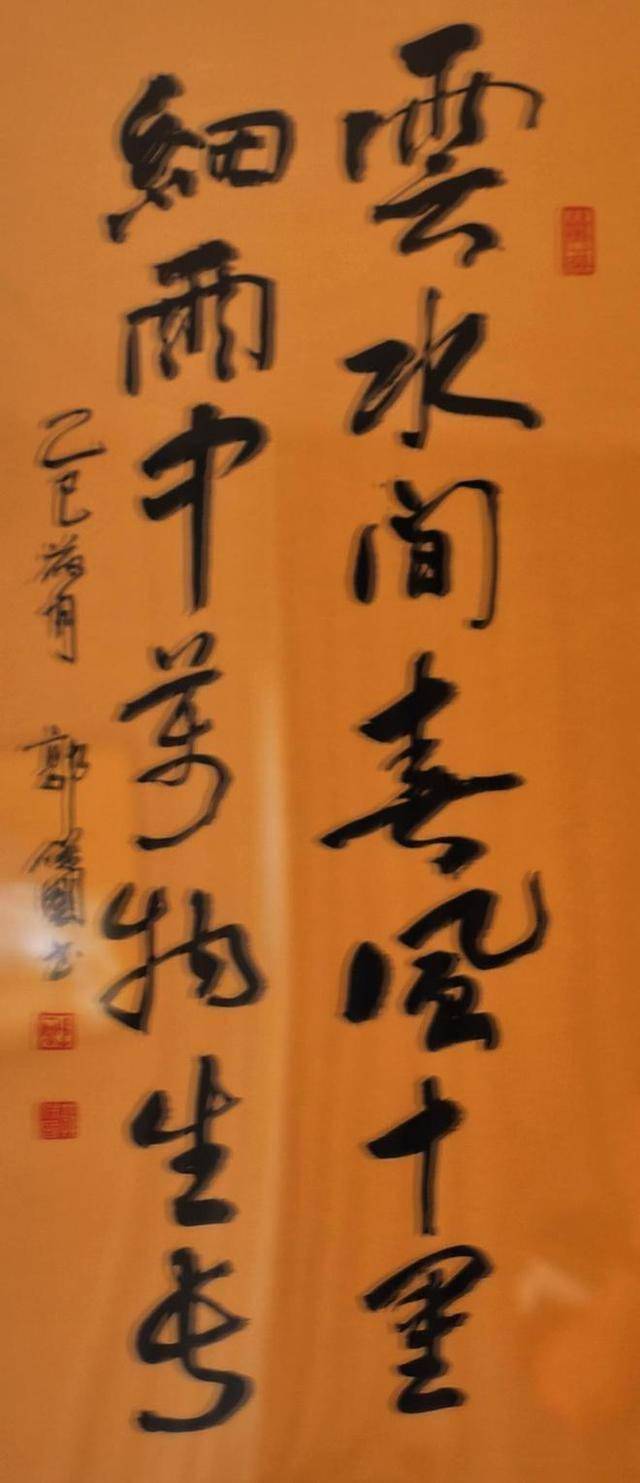 雲水間春風十里
細雨中萬物生長
乙巳荷月 郭 國書